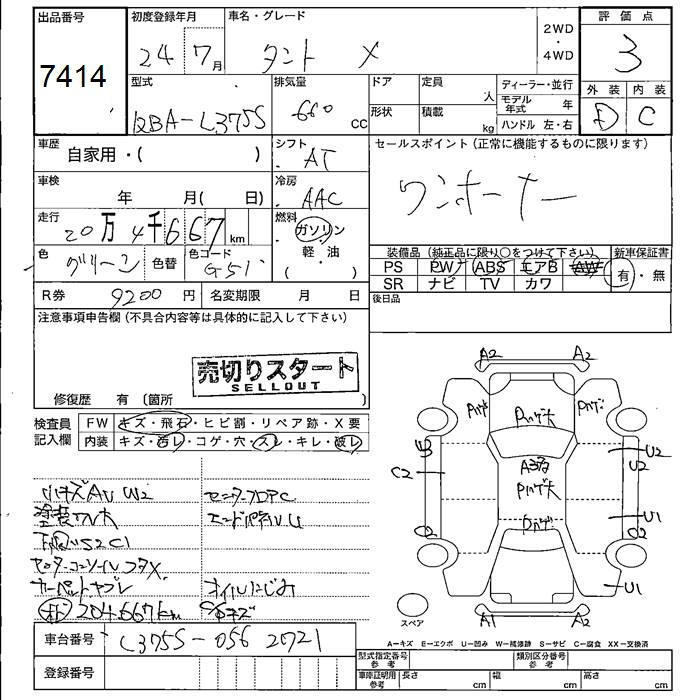 出品番号
7414
初度登録年月
24 7月
車名・グレード
タント X
2WD
・
4WD
評価点
3
外装 内装
D C
型式
DBA-L375S
排気量
660 cc
ドア
形状
定員 人
積載 kg
ディーラー・並行
モデル年式 年
ハンドル 左・右
車歴
自家用・( )
シフト
AT
セールスポイント(正常に機能するものに限ります)
ワンオーナー
車検
年 月( 日)
冷房
AAC
走行
20万4千667km
燃料
ガソリン
・
軽・油
・( )
色
グリーン
色替
色コード
G51
装備品(純正品に限り○をつけて下さい)
PS PW ABS エアB AW
SR ナビ TV カワ
新車保証書
有・無
R券 9200円
名変期限 月 日
後日品
注意事項申告欄(不具合内容等は具体的に記入して下さい)
売切りスタート
SELLOUT
修復歴 有(箇所
検査員
記入欄
FW キズ・飛石・ヒビ割・リペア跡・X要
内装 キズ・西レ・コゲ・穴・スレ・キレ・破レ
小キズAU W2
センターフロアC
塗装ワレ大
下回りS2C1
センターコンソールフタX
カーペットヤブレ
オイルにじみ
204.667km
A2 A2
Pハゲ Pハゲ大 Pハゲ
U3 U2
C2 A3有 U2
Pハゲ大
Pハゲ U1
C2 C2
U1
スペア
A1 A1
A－キズ E－エクボ U－凹み W－補修跡 S－サビ C－腐食 XX－交換済
車台番号 L375S-0562721
登録番号
型式指定番号
参考
類別区分番号
参考
車庫証明用
参考
長さ cm 幅 cm 高さ cm